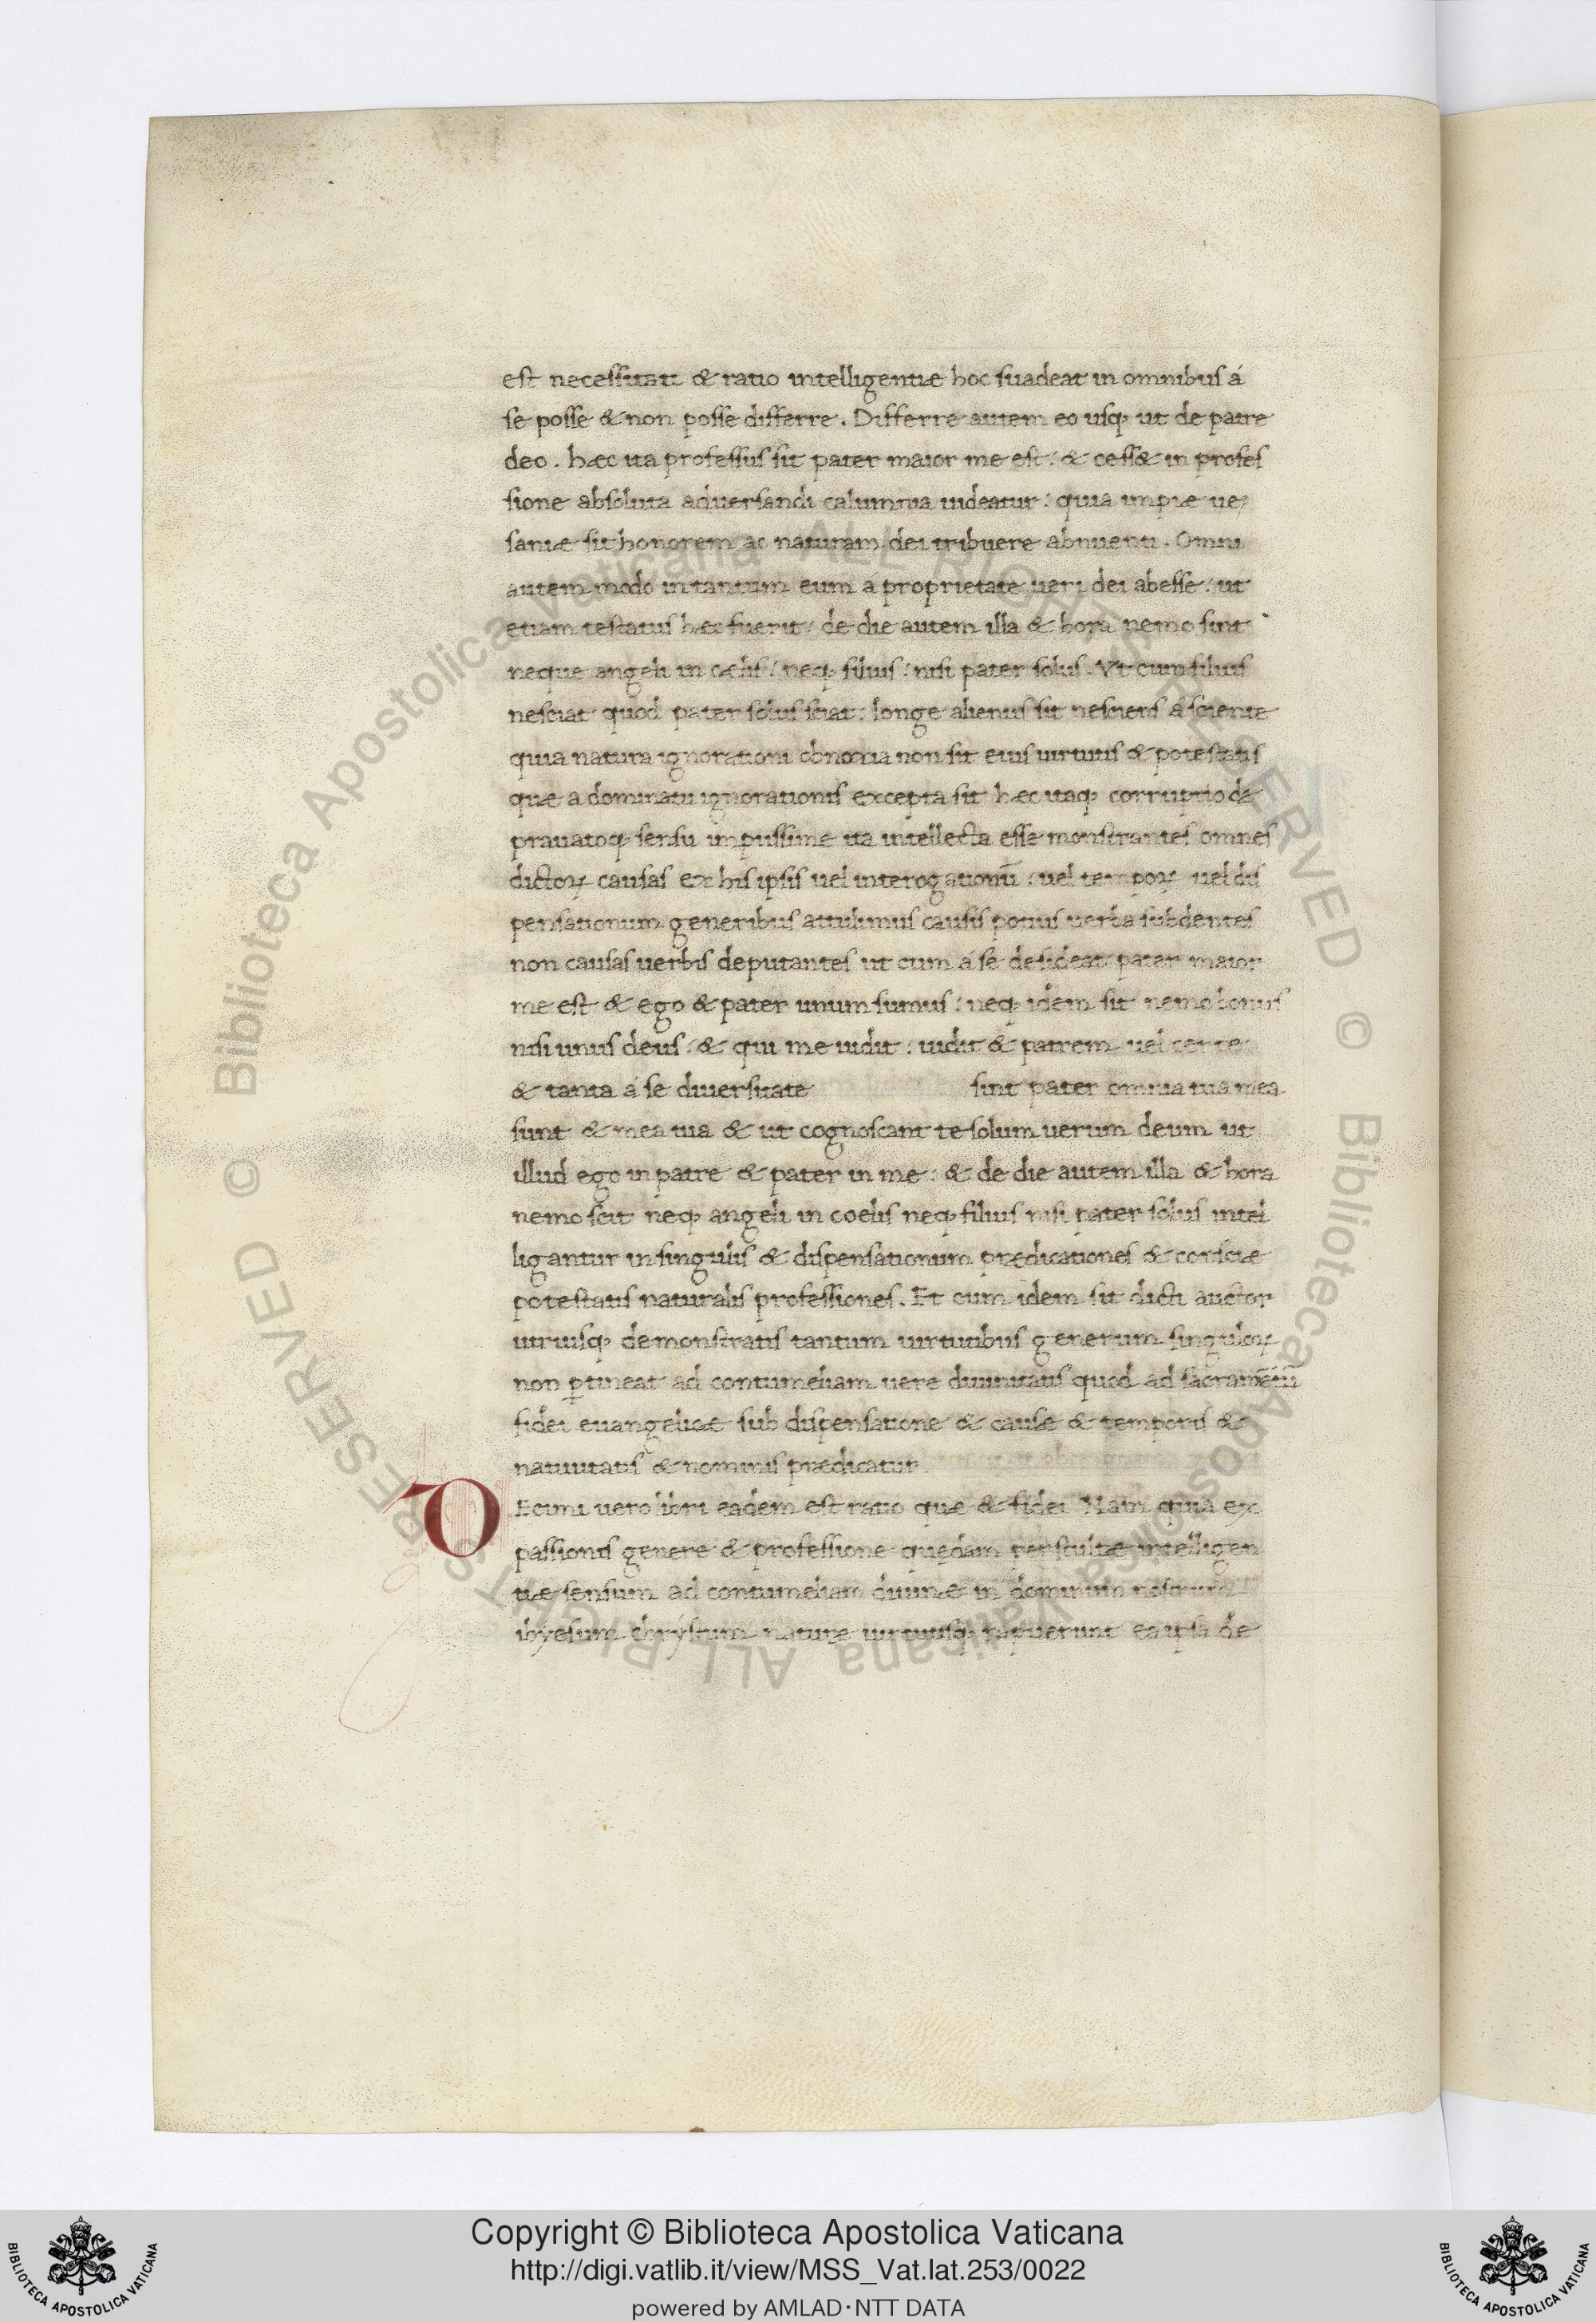 est necessitati & ratio intelligentiæ hoc suadeat in omnibus á
se posse & non posse differre. Differre autem eo usq; ut de patre
deo. hæc ita professus sit pater maior me est: & cess& in profes
sione absoluta adversandi calumnia uideatur: quia impiæ ue
saniæ sit honorem ac naturam dei tribuere abnuenti. Omni
autem modo in tantum eum á proprietate ueri dei abesse: ut
etiam testatus hæc fuerit: de die autem illa & hora nemo sint
neque angeli in cælis: neq; filius: nisi pater solus. Vt cum filius
nesciat quod pater solus sciat: longe alienus sit nesciens á sciente
quia natura ignorationi obnoxia non sit eius uirtutis & potestatis
quæ a dominatu ignorationis excepta sit hæc itaq; corruptio de
prauatoq; sensu impiissime ita intellecta esse monstrantes omnes
dictoꝝ causas ex his ipsis uel interogationū: uel tempoꝝ uel dis
pensationum generibus attulimus causis potius uerba subdentes
non causas uerbis deputantes ut cum á se desideat pater maior
me est & ego & pater unum sumus: neq; idem sit nemo bonus
nisi unus deus: & qui me uidit: uidit & patrem uel certe
& tanta á se diuersitate sint pater omnia tua mea
sunt & mea tua & ut cognoscant te solum uerum deum ut
illud ego in patre & pater in me: & de die autem illa & hora
nemo scit neq; angeli in coelis neq; filius nisi pater solus intel
ligantur in singulis & dispensationum prædicationes & consciæ
potestatis naturalis professiones. Et cum idem sit dicti auctor
utriusq; demonstratis tantum uirtutibus generum singuloꝝ
non ꝑtineat ad contumeliam uere diuinitatis quod ad sacramētū
fidei euangelicæ sub dispensatione & causæ & temporis &
natiuitatis & nominis prædicatur
DEcimi uero libri eadem est ratio que & fidei Nam quia ex
passionis genere & professione quędam per stultæ intelligen
tiæ sensum ad contumeliam diuinæ in dominum nostrum
ihyesum chrystum naturę uirtutisq; rapuerunt ea ipsa de
Copyright © Biblioteca Apostolica Vaticana
http://digi.vatlib.it/view/MSS_Vat.lat.253/0022
powered by AMLAD·NTT DATA
BIBLIOTECA APOSTOLICA VATICANA
BIBLIOTECA APOSTOLICA VATICANA
© Biblioteca Apostolica Vaticana ALL RIGHTS RESERVED
© Biblioteca Apostolica Vaticana ALL RIGHTS RESERVED